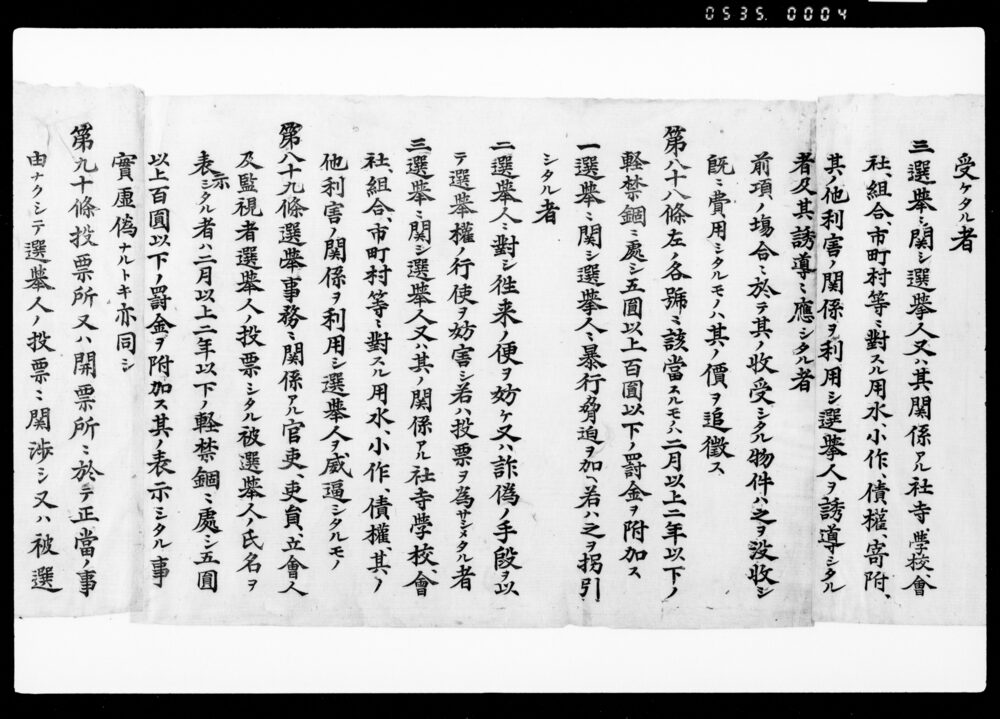 0535. 0004
受ケタル者
三選擧ニ関シ選擧人又ハ其関係アル社寺、學校、會
社、組合、市町村等ニ對スル用水、小作、債權、寄附、
其ノ他利害ノ関係ヲ利用シ選擧人ヲ誘導シタル
者及其誘導ニ應シタル者
前項ノ塲合ニ於テ其ノ收受シタル物件ハ之ヲ没收シ
既ニ費用シタルモノハ其ノ價ヲ追徴ス
第八十八條左ノ各號ニ該當スルモノハ二月以上二年以下ノ
軽禁錮ニ處シ五圓以上百圓以下ノ罰金ヲ附加ス
一選擧ニ関シ選擧人ニ暴行脅迫ヲ加ヘ若ハ之ヲ拐引
シタル者
二選擧人ニ對シ徃来ノ便ヲ妨ケ又ハ詐偽ノ手段ヲ以
テ選擧權行使ヲ妨害シ若ハ投票ヲ為サシメタル者
三選擧ニ関シ選擧人又ハ其ノ関係アル社寺學校、會
社組合、市町村等ニ對スル用水、小作、債權其ノ
他利害ノ関係ヲ利用シ選擧人ヲ威逼シタルモノ
第八十九條選擧事務ニ関係アル官吏、吏員、立會人
及監視者選擧人ノ投票シタル被選擧人ノ氏名ヲ
表示シタル者ハ二月以上二年以下ノ軽禁錮ニ處シ五圓
以上百圓以下ノ罰金ヲ附加ス其ノ表示シタル事
實虚偽ナルトキ亦同シ
第九十條投票所又ハ開票所ニ於テ正當ノ事
由ナクシテ選擧人ノ投票ニ関渉シ又ハ被選